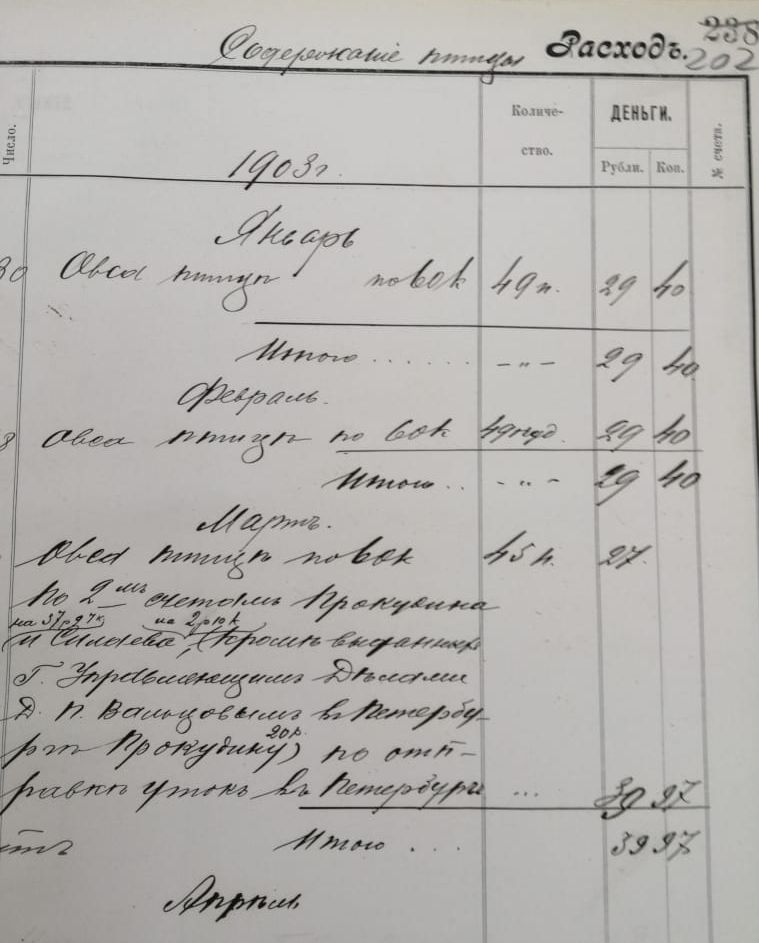 238
Содержаніе птицы Расходъ. 202
Число.
Количе-
ство.
ДЕНЬГИ.
Рубли. Коп.
№ счета.
1903 г.
Январь
30 Овса птицѣ по 60к 49 п. 29 40
Итого . . . . . . -„- 29 40
Февраль.
8 Овса птицѣ по 60к 49 пуд. 29 40
Итого . . -„- 29 40
Мартъ.
Овса птицѣ по 60к 45 п. 27
По 2мъ счетамъ Прокудина
на 37р 27к на 2р 70к
и Силаева, (кромѣ выданныхъ
Г. Управляющимъ Дѣлами
Д. П. Вальцовымъ въ Петербу-
20к.
ргѣ Прокудину) по отп-
равкѣ утокъ въ Петербургъ ... 39 97
Итого . . . 39 97
Апрѣль